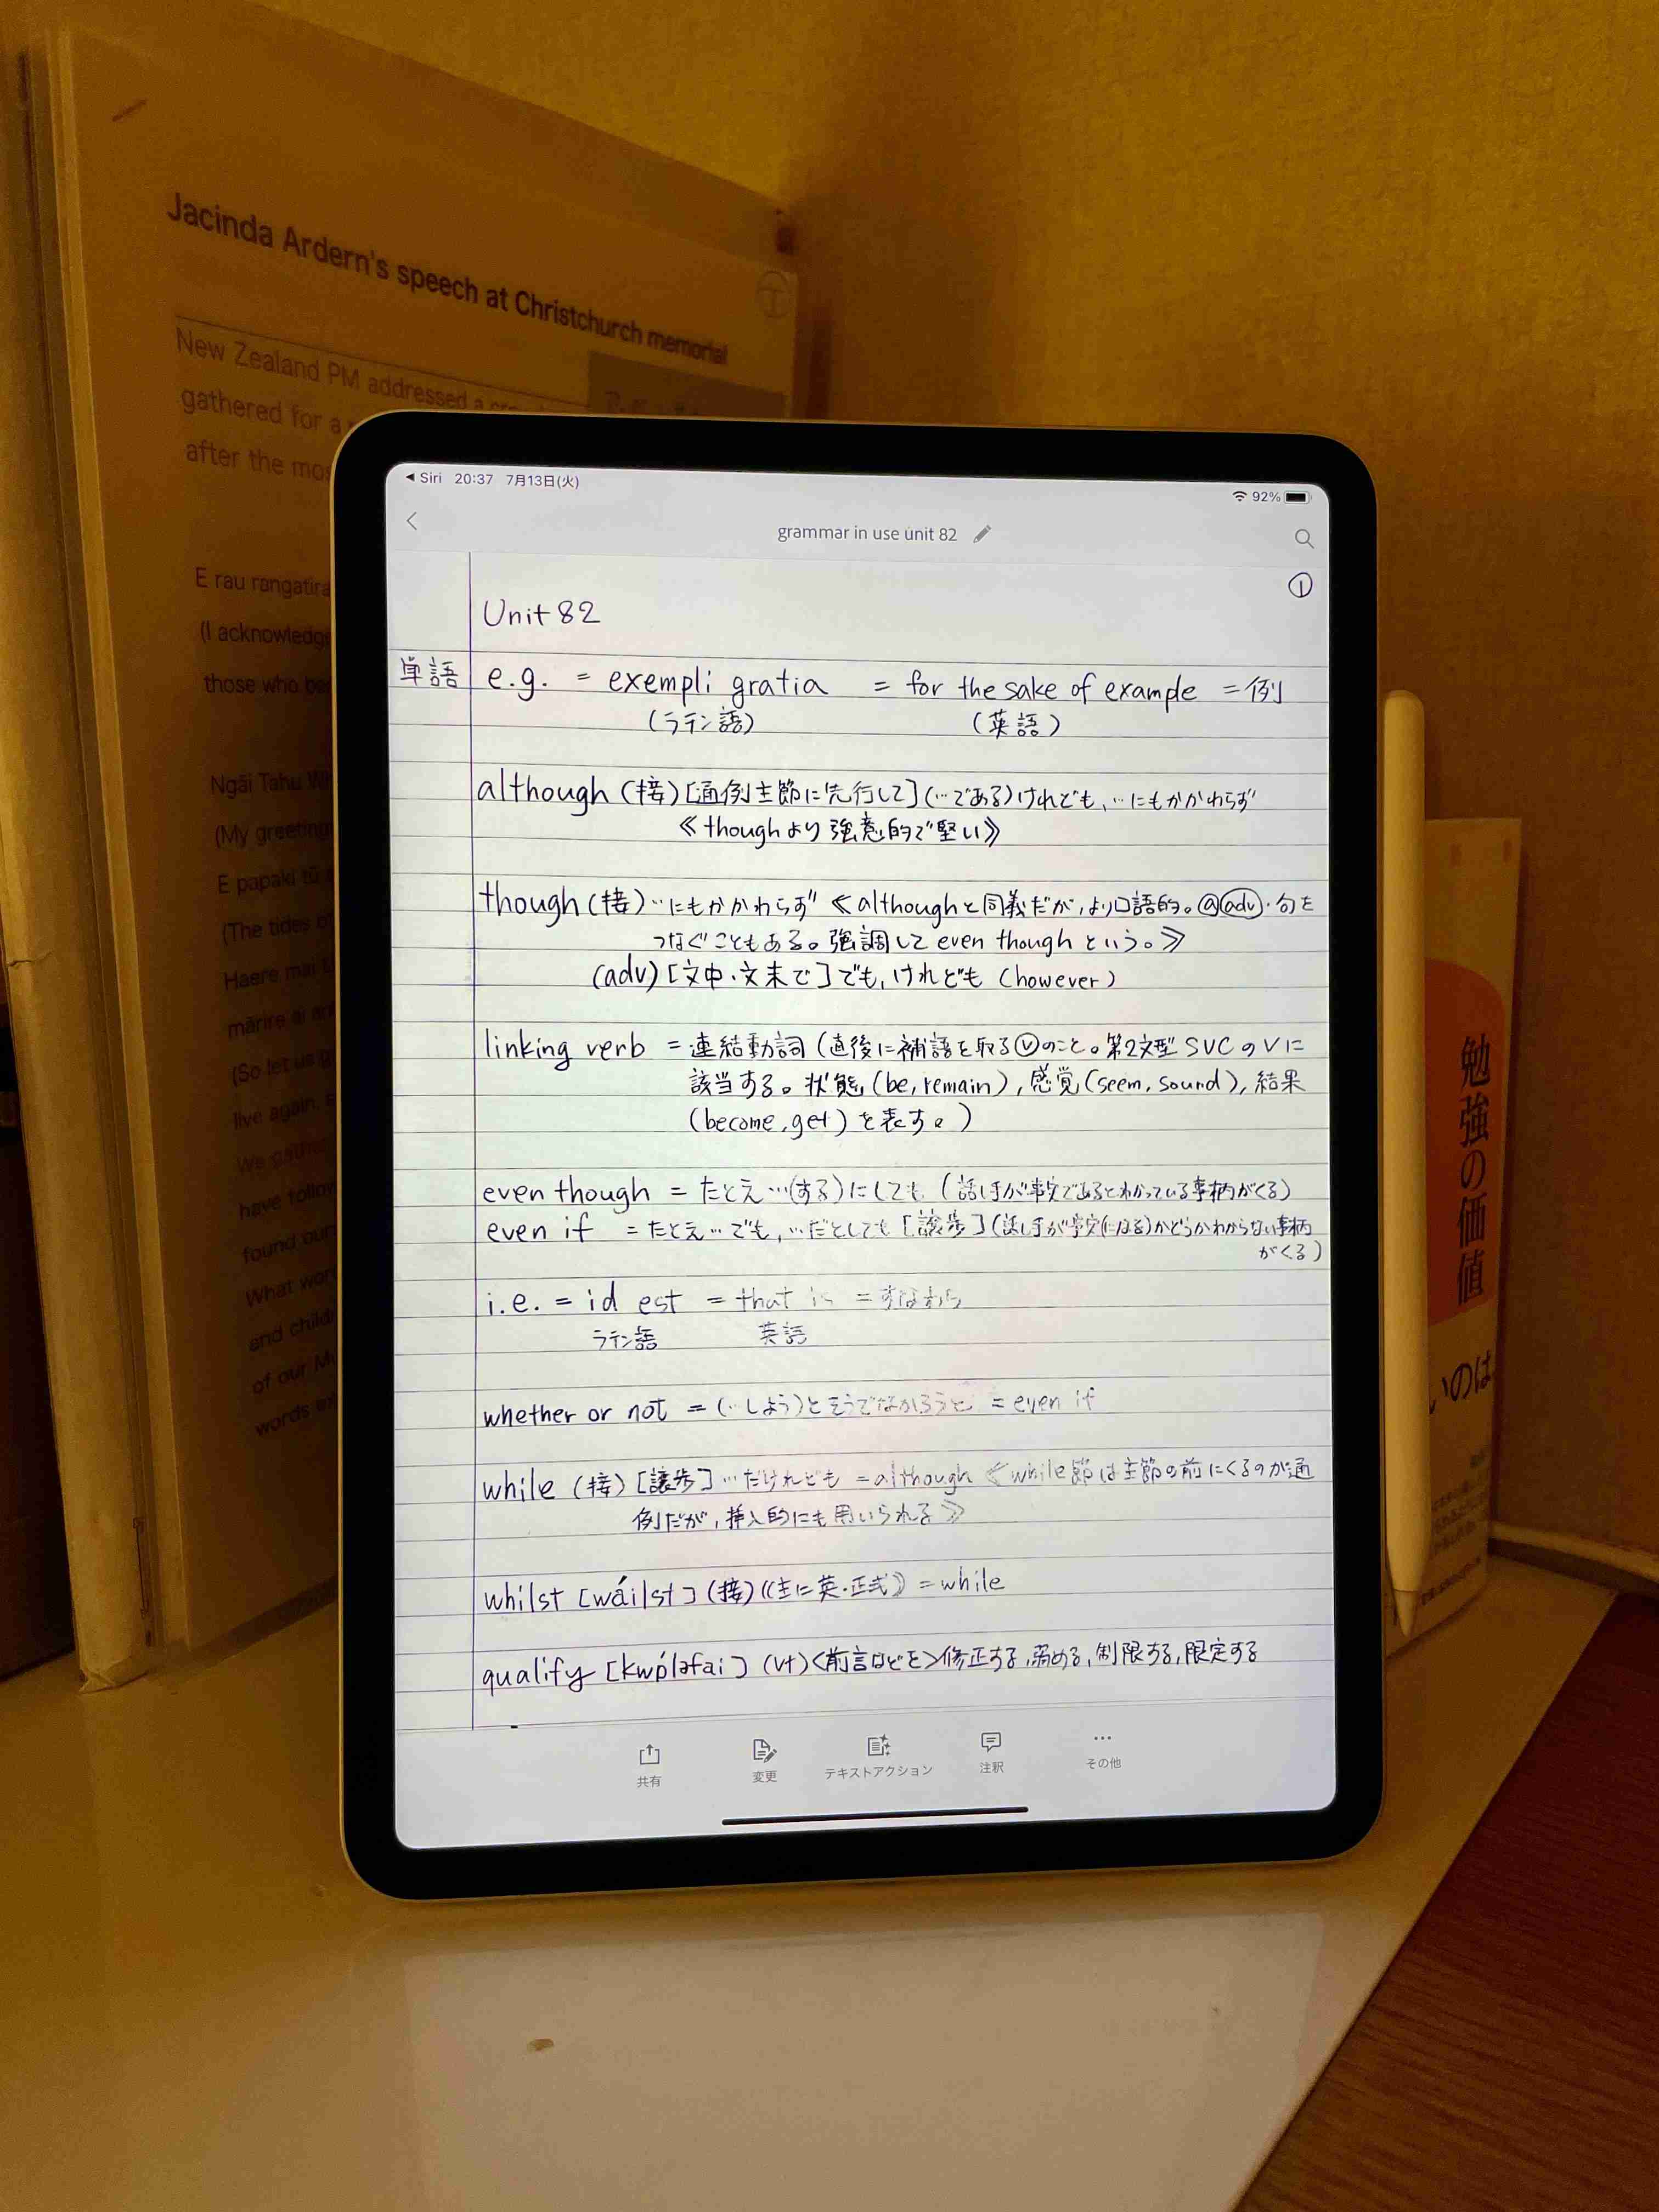 Jacinda Ardern's speech at Christchurch memorial
New Zealand PM addressed a
gathered for a
after the
E rau rangatira
(I acknowledge
those who
Ngāi Tahu
(My greeting
E papaki tū
(The tides
Haere mai
mārire
(So let us
live again,
We gather
have
found our
What
and child
of our
words
Siri 20:37 7月13日(火)
92%
grammar in use unit 82
①
Unit 82
単語 e.g. = exempli gratia = for the sake of example = 例
(ラテン語) (英語)
although (接) [通例主節に先行して] (…である)けれども、…にもかかわらず
《thoughより強意的で堅い》
though (接) …にもかかわらず 《althoughと同義だが、より口語的。ⓐadv・句を
つなぐこともある。強調して even though という。》
(adv) [文中・文末で] でも, けれども (however)
linking verb = 連結動詞 (直後に補語を取るⓥのこと。第2文型 SVCのVに
該当する。状態 (be, remain), 感覚 (seem, sound), 結果
(become, get) を表す。)
even though = たとえ…(する)にしても (話し手が事実であるとわかっている事柄がくる)
even if = たとえ…でも, …だとしても [譲歩] (話し手が事実(になる)かどうかわからない事柄
がくる)
i.e. = id est = that is = すなわち
ラテン語 英語
whether or not = (…しよう)とそうでなかろうと = even if
while (接) [譲歩] …だけれども = although 《while節は主節の前にくるのが通
例だが, 挿入的にも用いられる》
whilst [wáilst] (接) 《主に英・正式》 = while
qualify [kwɒ́ləfai] (vt) <前言などを> 修正する, 弱める, 制限する, 限定する
共有 変更 テキストアクション 注釈 その他
勉強の価値
いのは